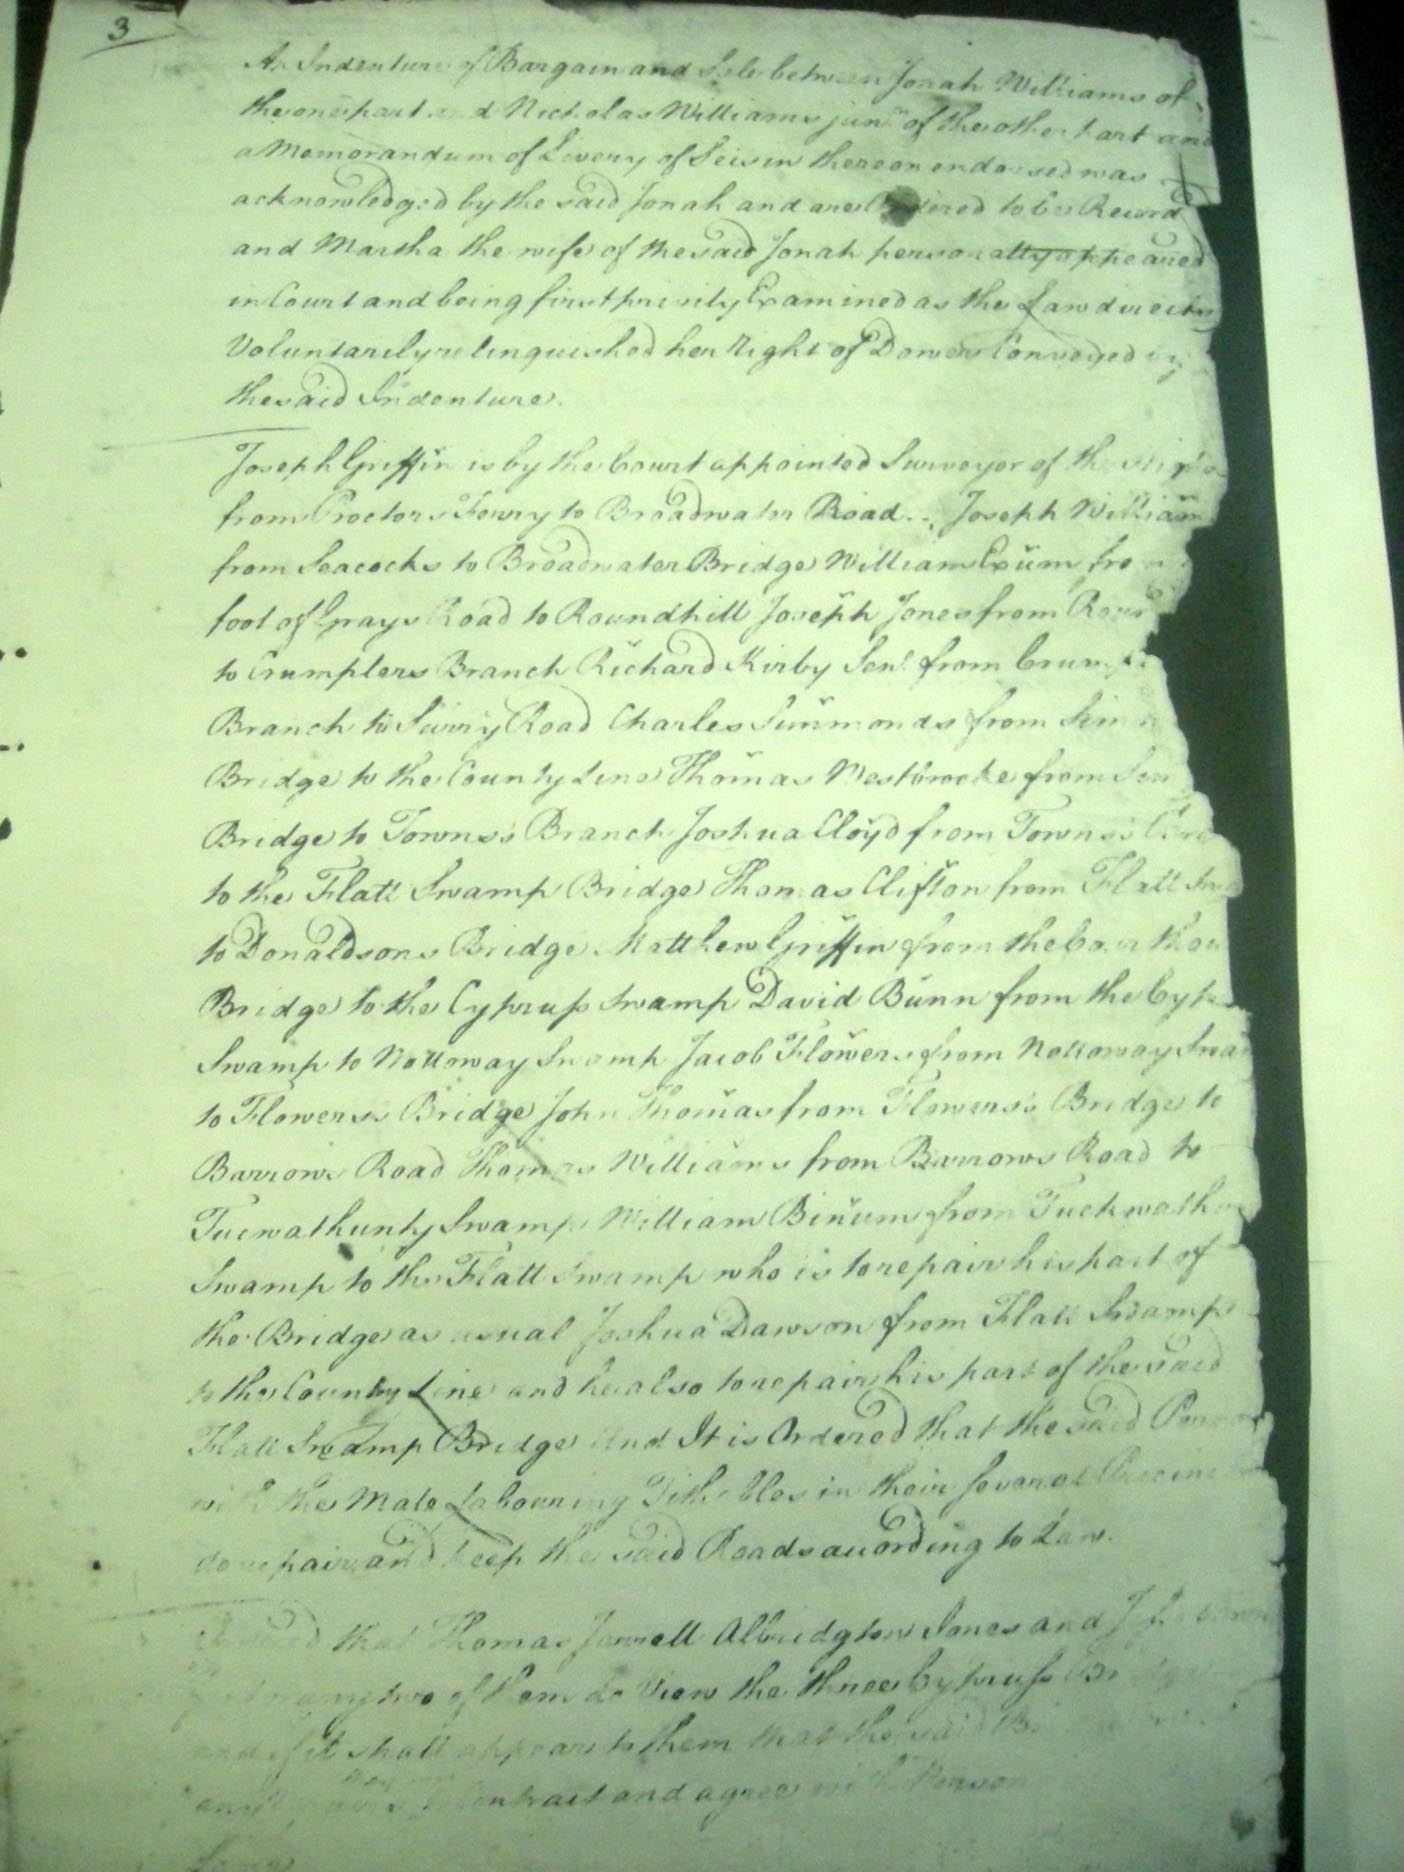 3
An Indenture of Bargain and Sale between Jonah Williams of
the one part and Nicholas Williams junr. of the other part and
a Memorandum of Livery of Seisin thereon endorsed was
acknowledged by the said Jonah and are Ordered to be Record
and Martha the wife of the said Jonah personally appeared
in Court and being first privily Examined as the Law directs
Voluntarily relinquished her Right of Dower Conveyed by
the said Indenture.
Joseph Griffin is by the Court appointed Surveyor of the
from Proctors Ferry to Broadwater Road. Joseph William
from Seacocks to Broadwater Bridge William Exum from
foot of Grays Road to Roundhill Joseph Jones from
to Crumplers Branch Richard Kirby Senr. from
Branch to Surry Road Charles Simmonds from
Bridge to the County Line Thomas Westbrooke from
Bridge to Towns's Branch Joshua Cloyd from Towns's
to the Flatt Swamp Bridge Thomas Clifton from Flatt
to Donaldsons Bridge Matthew Griffin from the
Bridge to the Cyprus Swamp David Bunn from the
Swamp to Nottoway Swamp Jacob Flowers from Nottoway
to Flowers's Bridge John Thomas from Flowers's Bridge to
Barrows Road Thomas Williams from Barrows Road to
Tucwathunty Swamp William Binum from
Swamp to the Flatt Swamp who is to repair his part of
the Bridge as usual Joshua Dawson from Flatt Swamp
to the County Line and he also to repair his part of the said
Flatt Swamp Bridge And It is Ordered that the said
with the Male Labouring Tithables in their Several
do repair and keep the said Roads according to Law.
Ordered that Thomas Jarrell Albridgton Jones and
any two of them do View the three Cypruss
and if it shall appear to them that the said
Contract and agree with Person